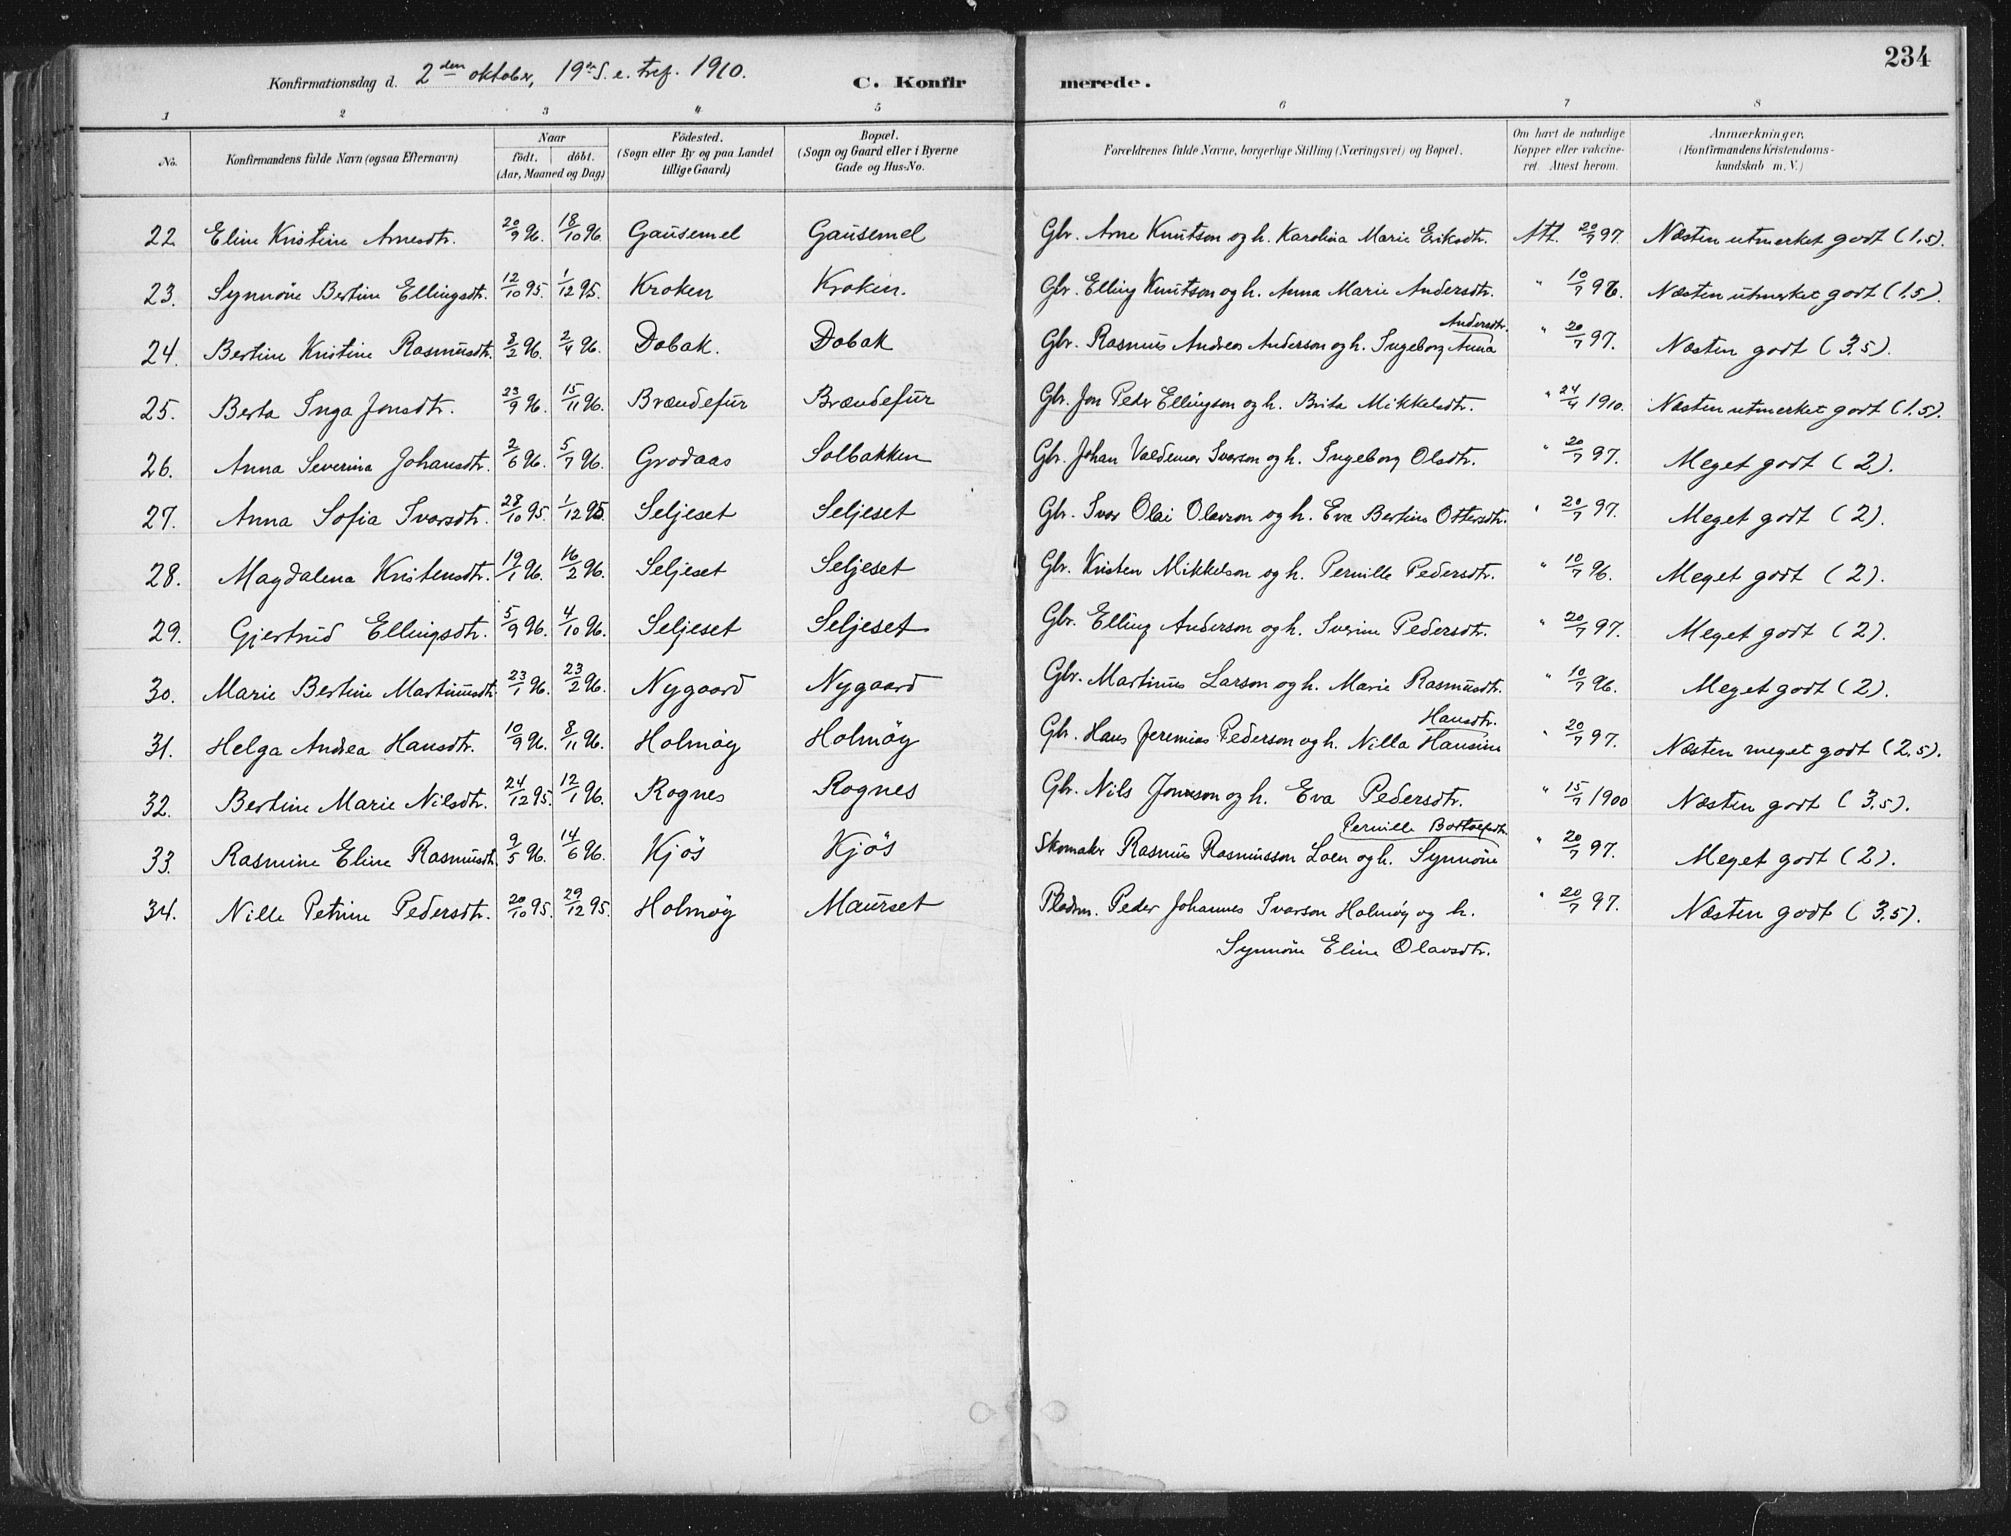 234
Konfirmationsdag d. 2den oktober, 19de S. e. tref. 1910. C. Konfir merede.
1 2 3 4 5 6 7 8
No. Konfirmandens fulde Navn (ogsaa Efternavn) Naar födt. döbt. (Aar, Maaned og Dag) Födested. (Sogn eller By og paa Landet tillige Gaard) Bopæl. (Sogn og Gaard eller i Byerne Gade og Hus-No. Forældrenes fulde Navne, borgerlige Stilling (Næringsvei) og Bopæl. Om havt de naturlige Kopper eller vakcineret. Attest herom. Anmærkninger. (Konfirmandens Kristendomskundskab m. V.)
22 Eline Kristine Arnesdtr. 20/9 96. 18/10 96. Gausemel Gausemel Gbr. Arne Knutson og h. Karolina Marie Eriksdtr. Att. 20/7 97. Næsten utmerket godt (1,5).
23. Synnöve Bertine Ellingsdtr. 12/10 95. 1/12 95. Kroken Kroken. Gbr. Elling Knutson og h. Anna Marie Andersdtr. " 10/7 96. Næsten utmerket godt (1,5).
24. Bertine Kristine Rasmusdtr. 8/2 96. 2/4 96. Dobak. Dobak Gbr. Rasmus Andreas Anderson og h. Ingeborg Anna Andersdtr. " 20/7 97. Næsten godt (3,5).
25. Berta Inga Jonsdtr. 23/9 96. 15/11 96. Brændefur Brændefur Gbr. Jon Peder Ellingson og h. Brita Mikkelsdtr. " 24/4 1910. Næsten utmerket godt (1,5).
26. Anna Severina Johansdtr. 2/6 96. 5/7 96. Grodaas Solbakken Gbr. Johan Valdemar Iverson og h. Ingeborg Olsdtr. " 20/7 97. Meget godt (2).
27. Anna Sofia Ivarsdtr. 28/10 95. 1/12 95. Seljeset Seljeset Gbr. Ivar Olai Olavson og h. Eva Bertine Ottersdtr. " 20/7 97. Meget godt (2).
28. Magdalena Kristensdtr. 19/1 96. 16/2 96. Seljeset Seljeset Gbr. Kristen Mikkelson og h. Pernille Pedersdtr. " 10/7 96. Meget godt (2).
29. Gjertrud Ellingsdtr. 5/9 96. 4/10 96. Seljeset Seljeset Gbr. Elling Anderson og h. Iverine Pedersdtr. " 20/7 97. Meget godt (2).
30. Marie Bertine Martinusdtr. 23/1 96. 23/2 96. Nygaard Nygaard Gbr. Martinus Larson og h. Marie Rasmusdtr. " 10/7 96. Meget godt (2).
31. Helga Andrea Hansdtr. 10/9 96. 8/11 96. Holmøy Holmøy Gbr. Hans Jeremias Pederson og h. Nilla Hansine Hansdtr. " 20/7 97. Næsten meget godt (2,5).
32. Bertine Marie Nilsdtr. 24/12 95. 12/1 96. Rognes Rognes Gbr. Nils Jonsson og h. Eva Pedersdtr. " 15/7 1900 Næsten godt (3,5).
33. Rasmine Eline Rasmusdt. 9/5 96. 14/6 96. Kjös Kjös Skomaker Rasmus Rasmusson Loen og h. Synnöve Pernille Bottolfsdtr. " 20/7 97. Meget godt (2).
34. Nille Petrine Pedersdtr. 20/10 95. 29/12 95. Holmøy Maurset Pladsm. Peder Johannes Ivarson Holmøy og h. " 20/7 97. Næsten godt (3,5).
Synnöve Eline Olavsdtr.